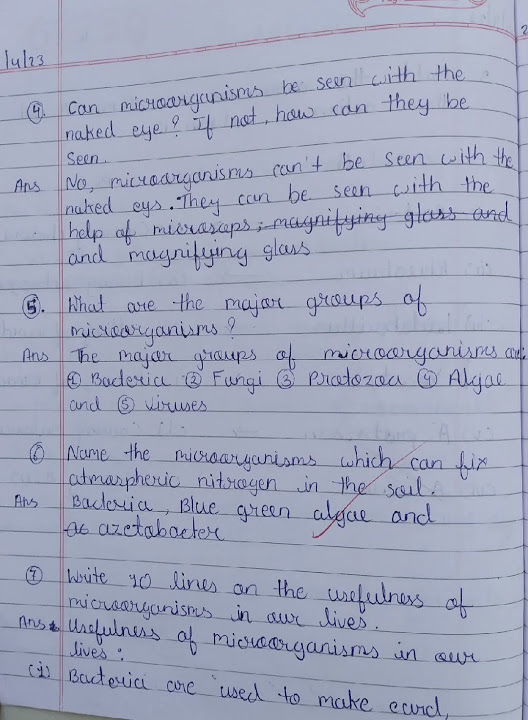 /4/23
2
④. Can microorganisms be seen with the
naked eye? If not, how can they be
seen.
Ans No, microorganisms can't be seen with the
naked eys. They can be seen with the
help of microsaps, magnifying glass and
and magnifying glass
⑤. What are the major groups of
microorganisms?
Ans The major groups of microorganisms are:
① Bacteria ② Fungi ③ Protozoa ④ Algae
and ⑤ viruses
⑥ Name the microorganisms which can fix
atmospheric nitrogen in the soil.
Ans Bacteria, Blue green algae and
azetobacter
⑦ Write 10 lines on the usefulness of
microorganisms in our lives.
Ans Usefulness of microorganisms in our
lives:
(i) Bacteria are used to make curd,